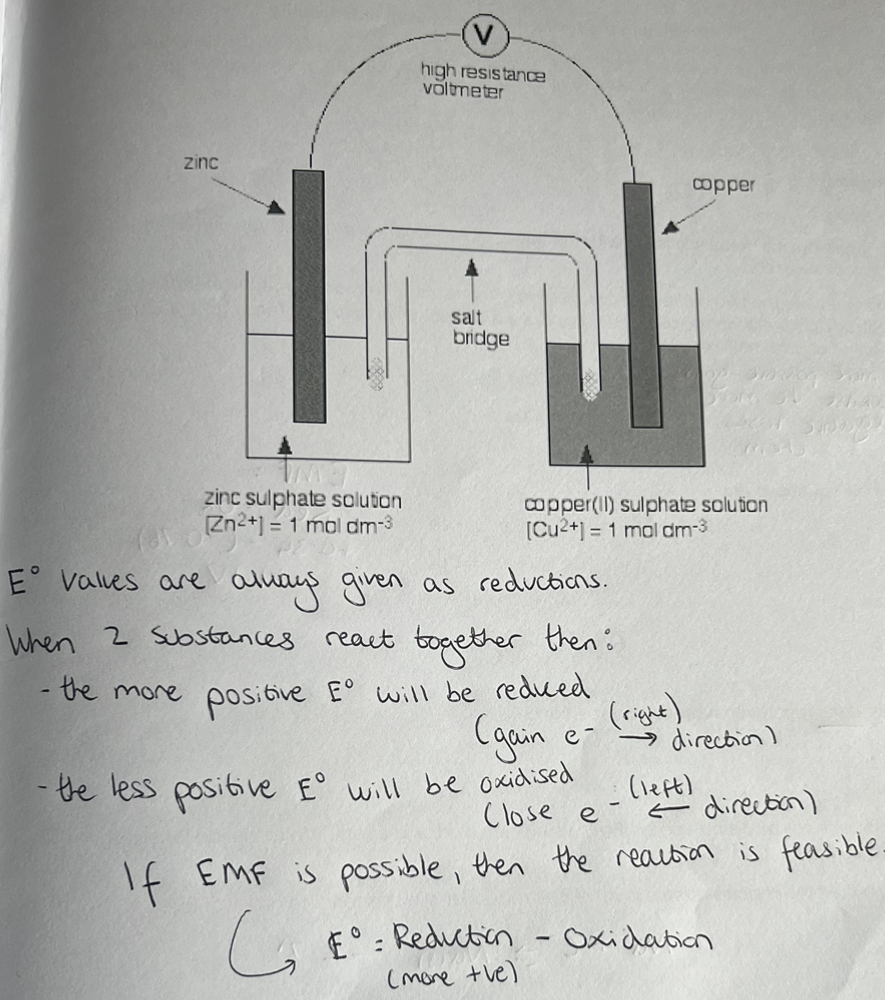 V
high resistance
voltmeter
zinc
copper
salt
bridge
zinc sulphate solution
[Zn2+] = 1 mol dm-3
copper(II) sulphate solution
[Cu2+] = 1 mol dm-3
E° values are always given as reductions.
When 2 substances react together then:
- the more positive E° will be reduced
(gain e- (right) → direction)
- the less positive E° will be oxidised
(lose e- (left) ← direction)
If EMF is possible, then the reaction is feasible.
E° = Reduction - Oxidation
(more +ve)